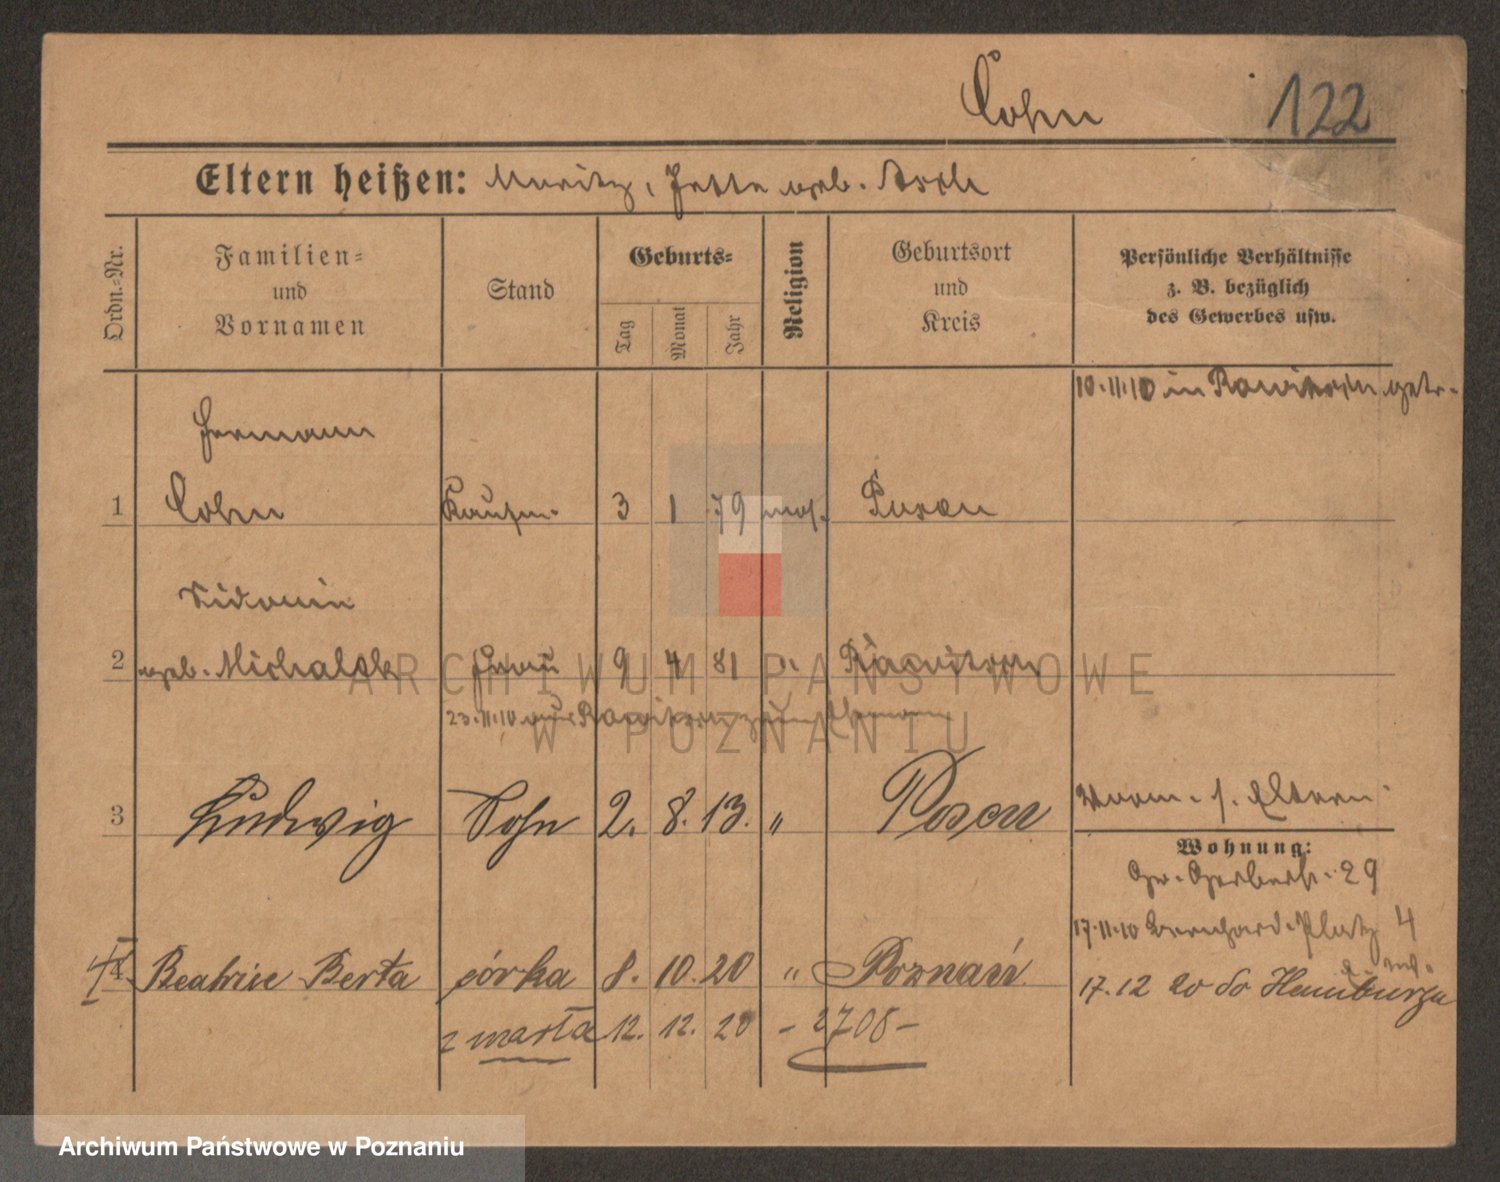 Cohn 122
Eltern heißen: Moritz, Jette geb. Asch
Ordn.-Nr.
Familien-
und
Vornamen
Stand
Geburts-
Tag
Monat
Jahr
Religion
Geburtsort
und
Kreis
Persönliche Verhältnisse
z. B. bezüglich
des Gewerbes usw.
10.11.10 in Rawitsch getr.
Hermann
1 Cohn Kaufm. 3 1 79 mos. Posen
Sidonie
2 geb. Michalski Frau 9 4 81 ". Rawitsch
23.11.10 aus Rawitsch zum
3 Ludwig Sohn 2. 8. 13. " Posen
Worm. s. Eltern
Wohnung:
Gr. Gerberstr. 29
17.11.10 Bernhard. Platz 4
4 Beatrice Berta córka 8. 10. 20 " Poznań
17.12 20 do Hamburga
zmarła 12. 12. 20 - 2708 -
ARCHIWUM PAŃSTWOWE
W POZNANIU
Archiwum Państwowe w Poznaniu